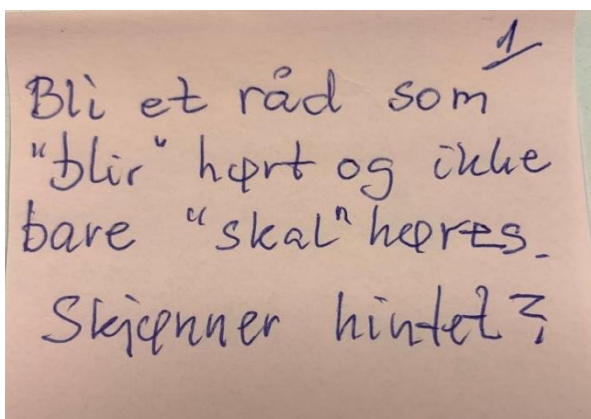 1
Bli et råd som
"blir" hørt og ikke
bare "skal" høres.
Skjønner hintet?